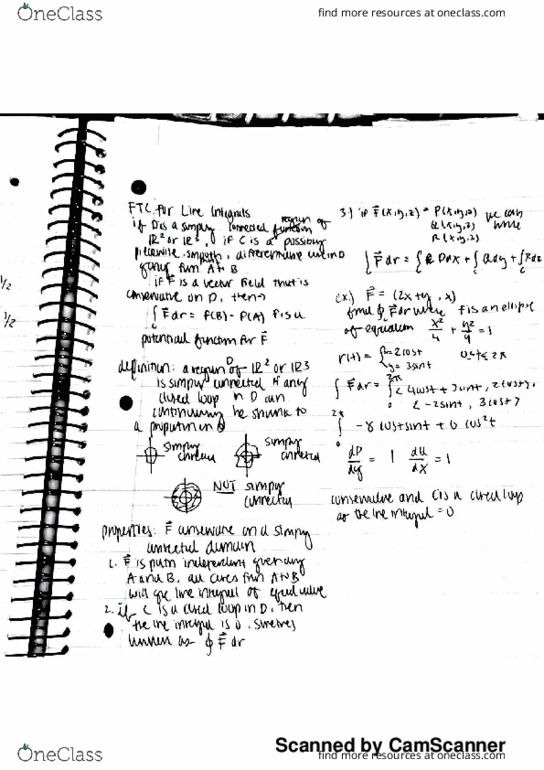 OneClass
find more resources at oneclass.com
FTC for Line Integrals
if D is a simply connected region of
IR² or IR³, if C is a possibly
piecewise, smooth, differentiable curve in D
going from A to B
if F⃗ is a vector field that is
conservative on D, then
∫ F⃗ dr = f(B) - f(A) f is a
C
potential function for F⃗
definition: a region D of IR² or IR3
is simply connected if any
closed loop in D can
continuously be shrunk to
a point in D
simply connected
simply connected
NOT simply connected
properties: F⃗ conservative on a simply
connected domain
1. F⃗ is path independent given any
A and B, all curves from A to B
will give line integral of equal value
2. if C is a closed loop in D, then
the line integral is 0. Sometimes
known as ∮ F⃗ dr
3.) if F⃗(x,y,z) = P(x,y,z) we can
Q(x,y,z) write
R(x,y,z)
∫ F⃗ dr = ∫ P dx + ∫ Q dy + ∫ R dz
C C C C
ex.) F⃗ = (2x+y, x)
find ∮ F⃗ dr where C is an ellipse
of equation x²/4 + y²/9 = 1
r(t) = x=2cost 0≤t≤2π
y=3sint
∫ F⃗ dr = ∫ <4cost + 3sint, 2cost>,
<-2sint, 3cost>
∫ -8 cost sint + 6 cos²t
dP/dy = 1 dQ/dx = 1
conservative and C is a closed loop
so the line integral = 0
1/2
3/2
Scanned by CamScanner
OneClass
find more resources at oneclass.com